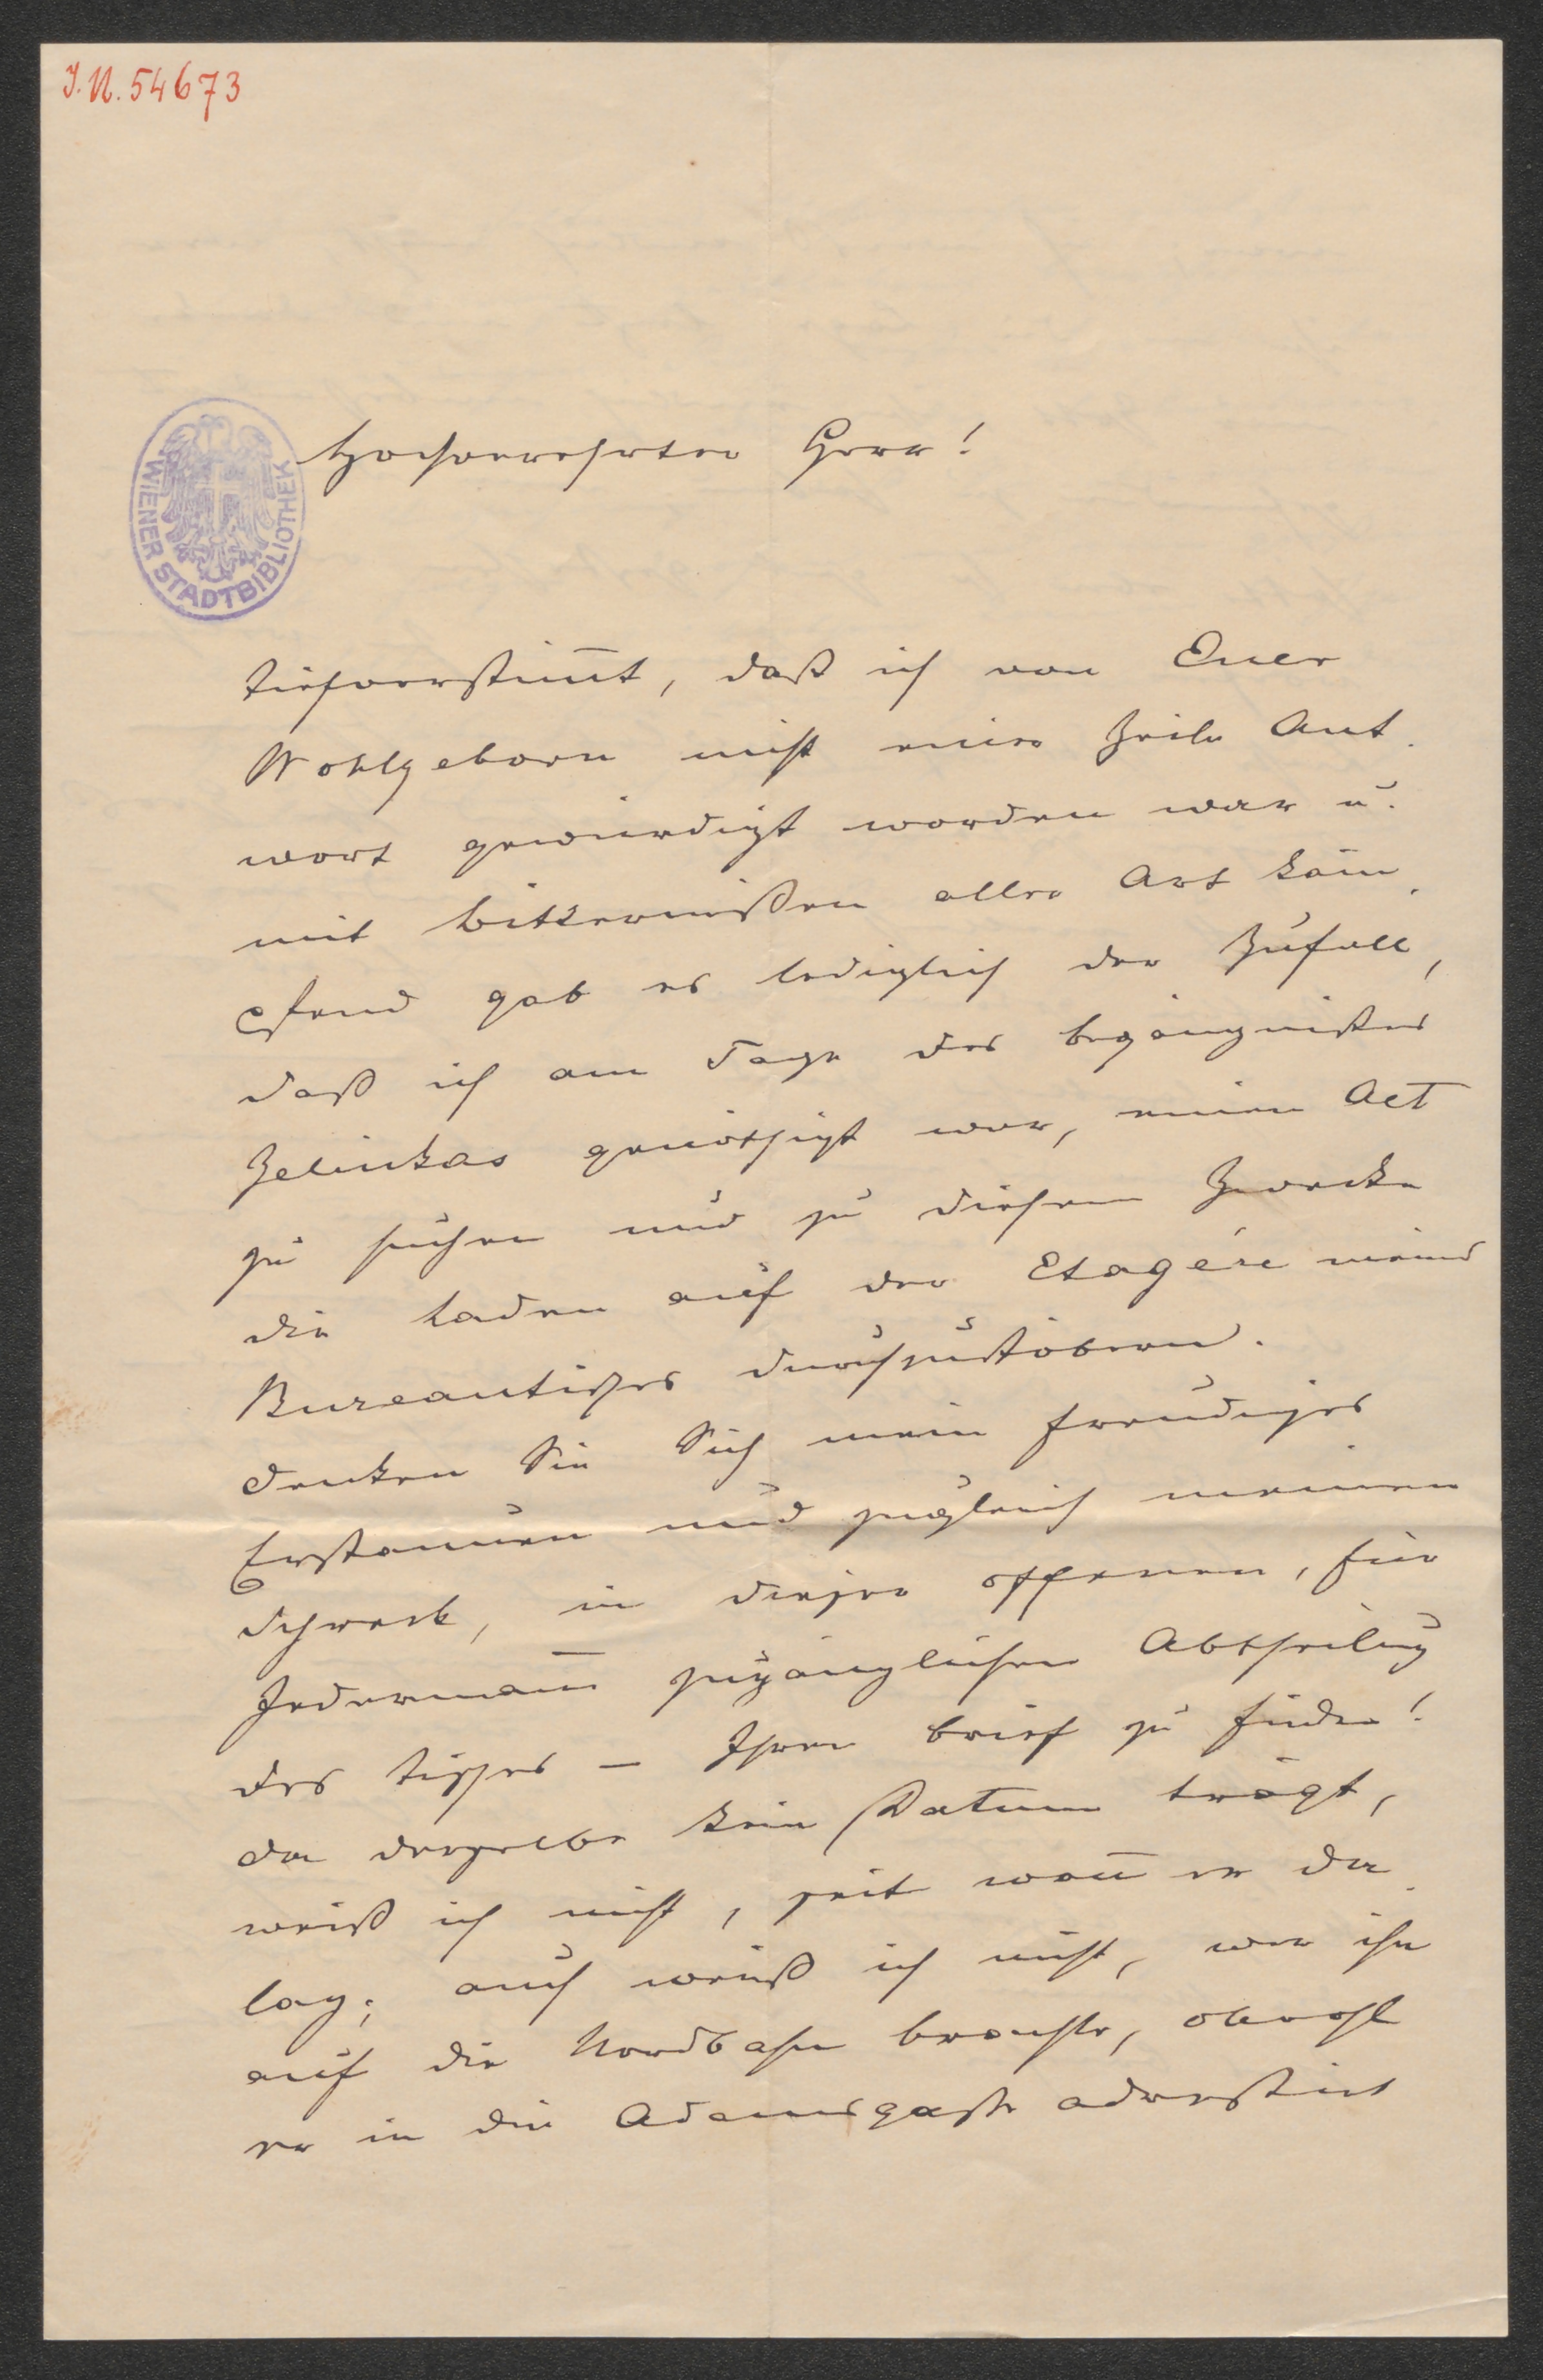 I.N. 54673
WIENER STADTBIBLIOTHEK
Hochverehrter Herr!
Tiefverstim̄t, daß ich von Euer
Wohlgeborn nicht einer Zeile Ant-
wort gewürdigt worden war u.
mit Bitternißen aller Art käm-
pfend gab es lediglich der Zufall,
daß ich am Tage des Begängnißes
Zelinkas genöthigt war, einen Act
zu suchen und zu diesem Zwecke
die Laden auf der Etagére meines
Bureautisches durchzustöbern.
Denken Sie Sich mein freudiges
Erstaunen und zugleich meinen
Schreck, in dieser offenen, für
Jederman̄ zugänglichen Abtheilung
des Tisches – Ihren Brief zu finden!
Da derselbe kein Datum trägt,
weiß ich nicht, seit wan̄ er da
lag; auch weiß ich nicht, wer ihn
auf die Nordbahn brachte, obwohl
er in die Adamsgasse adressirt